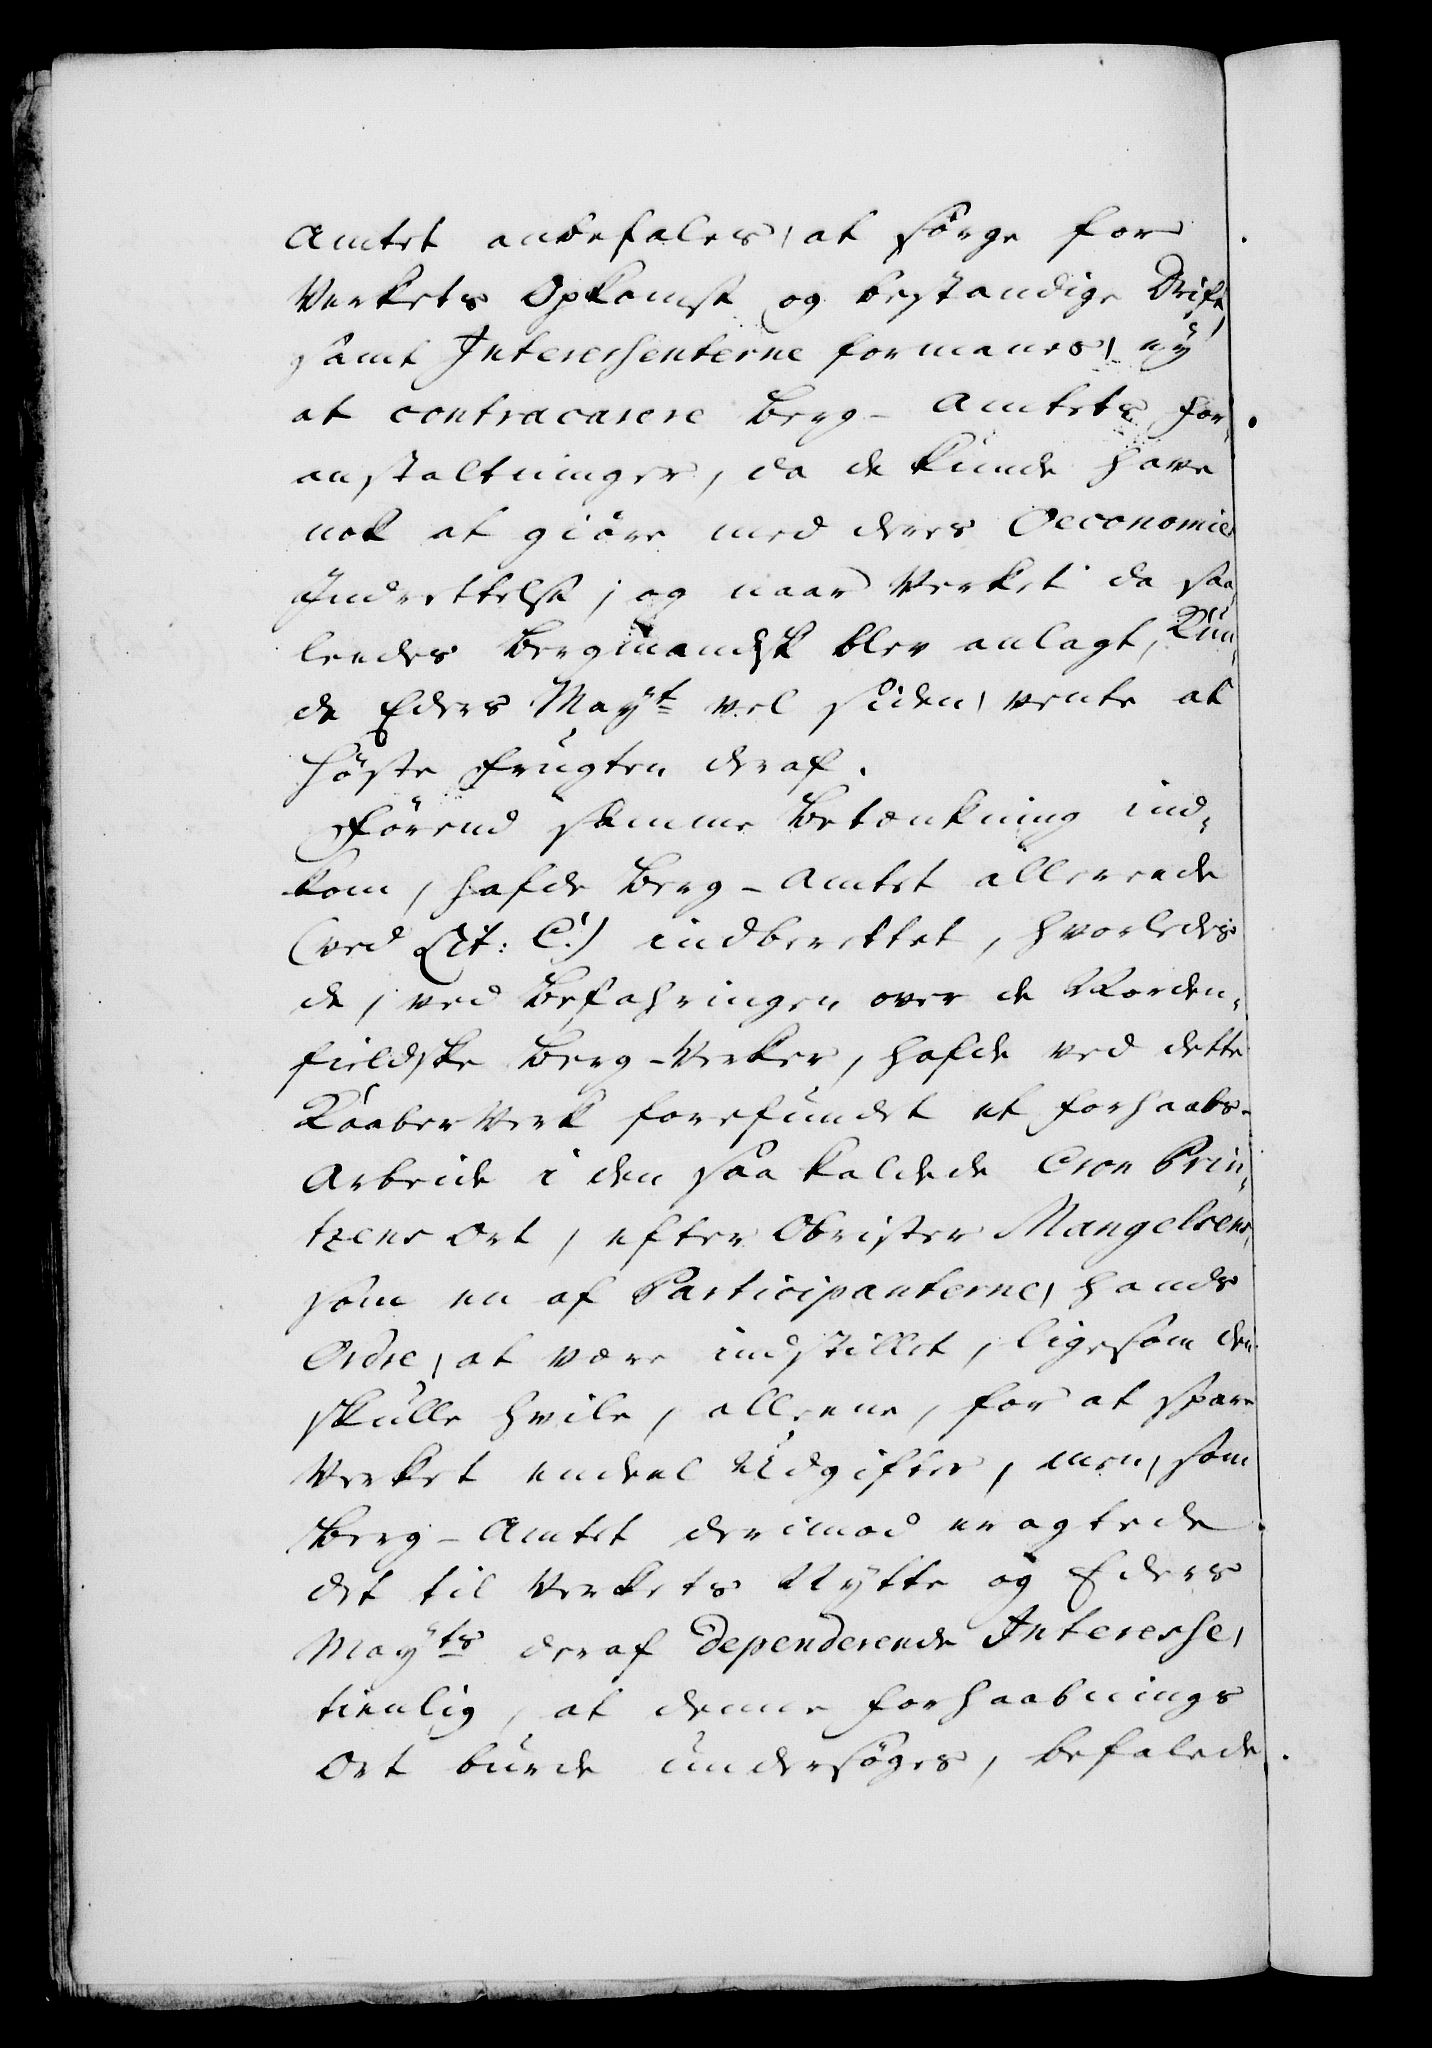 Amtet anbefales, at sørge for
Verkets Opkomst og bestandige Drift,
samt Interessenterne formanes, ey
at contracarere Berg-Amtets For-
anstaltninger, da de kunde have
nok at giøre med deres Oeconomie
Indrettelse, og naar Verket da saa-
ledes Bergmandsk blev anlagt, kun-
de Eders Mayt vel siden, vente at
høste Frugten deraf.
Førend samme Betænkning ind-
kom, hafde Berg-Amtet allereede
(ved Lit: C.) indberettet, hvorledes
de, ved Befahringen over de Norden-
fieldske Berg-Verker, hafde ved dette
Kaaber Verk forefundet et forhaabs-
Arbeide i den saa kaldede Cron Prin-
tzens Ort, efter Obrister Mangelsens,
som en af Participanterne, hands
Ordre, at være indstillet, ligesom den
skulle hvile, alleene, for at spare
Verket endeel Udgifter, men, som
Berg-Amtet derimod eragtede
det til Verkets Nytte og Eders
Mayts deraf dependerende Interesse,
tienlig, at denne forhaabnings
Ort burde undersøges, befalede